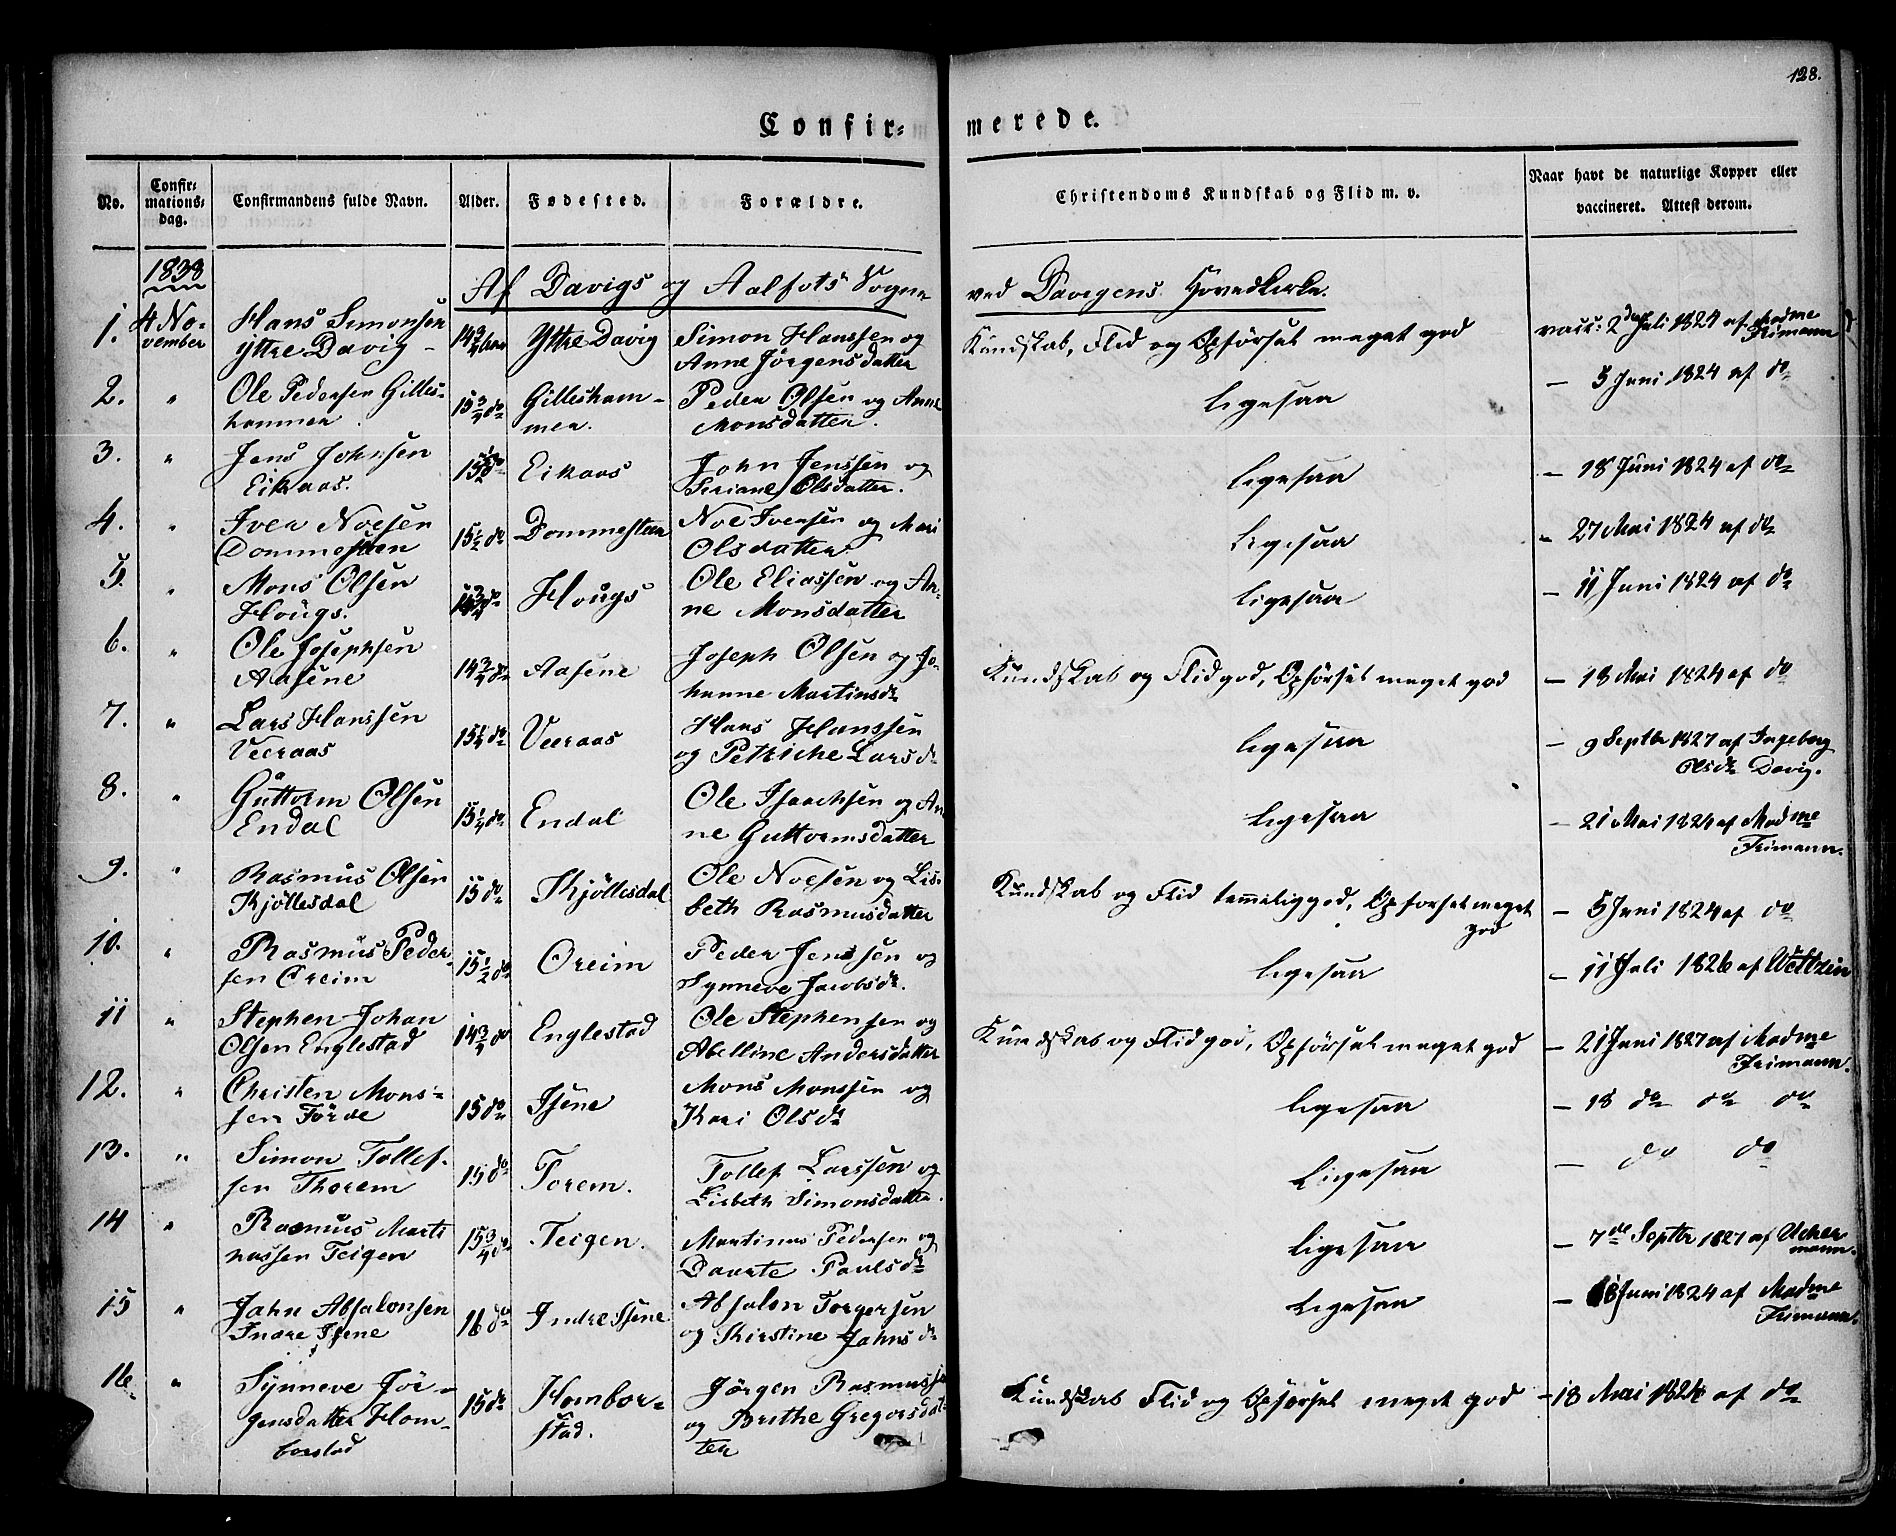 128.
Confir= merede.
No. Confir= mations= dag. Confirmandens fulde Navn. Alder. Fødested. Forældre. Christendoms Kundskab og Flid m. v. Naar havt de naturlige Kopper eller vaccineret. Attest derom.
1838 Af Davigs og Aalfots Sogne ved Davigens Hovedkirke.
1. 4 No- Hans Simonsen 14 3/4 Aar Yttre Davig Simon Hanssen og Kundskab, Flid og Opførsel meget god vacc: 2 Juli 1824 af Madme
vember Yttre Davig - Anne Jörgensdatter Frimann
2. " Ole Pedersen Gilles- 15 3/4 do Gillesham- Peder Olsen og Anne ligesaa — 5 Juni 1824 af do
hammer. mer. Monsdatter.
3. " Jens Johnsen 15 1/2 do Eikaas John Jenssen og ligesaa — 18 Juni 1824 af do
Eikaas. Siriane Olsdatter.
4. " Iver Noesen 15 1/2 do Dommesteen Noe Iversen og Mari ligesaa — 27 Mai 1824 af do
Dommesteen Olsdatter
5. " Mons Olsen do Hougs Ole Eliassen og An- ligesaa — 11 Juni 1824 af do
Hougs. ne Monsdatter
6. " Ole Josephsen 14 3/4 do Aasene Joseph Olsen og Jo- Kundskab og Flid god, Opførsel meget god — 18 Mai 1824 af do
Aasene hanne Martinsdr
7. " Lars Hanssen 15 1/4 do Veeraas Hans Hanssen ligesaa — 9 Septbr 1827 af Ingeborg
Veeraas og Petriche Larsdr Olsdr Davig.
8. " Guttorm Olsen 15 1/4 do Endal Ole Isachsen og An ligesaa — 21 Mai 1824 af Madme
Endal ne Guttormsdatter Frimann.
9. " Rasmus Olsen 15 do Kjöllesdal Ole Noesen og Lis- Kundskab og Flid temmelig god, Opførsel meget — 5 Juni 1824 af do
Kjöllesdal beth Rasmusdatter god
10. " Rasmus Peder- 15 1/2 do Oreim Peder Jenssen og ligesaa — 11 Juli 1826 af Weltzin
sen Oreim Synneve Jacobsdr.
11 " Stephen Johan 14 3/4 do Englestad Ole Stephensen og Kundskab og Flid god, Opførsel meget god — 21 Juni 1827 af Madme
Olsen Englestad Abelline Andersdatter Frimann.
12. " Christen Mons- 15 do Isene Mons Monssen og ligesaa — 18 do do do
sen Förde Kari Olsdr
13. " Simon Tollef- 15 do Torem. Tollef Larssen og Ligesaa — do do
sen Thorem Lisbeth Simonsdatter.
14 " Rasmus Marti 15 3/4 do Teigen. Martinus Pedersen og ligesaa — 7de Septbr 1827 af Ucher
nussen Teigen Daarte Paulsdr mann.
15 " John Absalonsen 16 do Indre Isene Absalon Torgersen ligesaa — Juni 1824 af Madme
Indre Isene og Kirstine Jahnsdr Frimann.
16 " Synneve Jör- 15 do Hombor- Jørgen Rasmussen Kundskab Flid og Opførsel meget god — 18 Mai 1824 af do
gensdatter Hom- stad. og Brithe Gregorsdat-
borstad ter